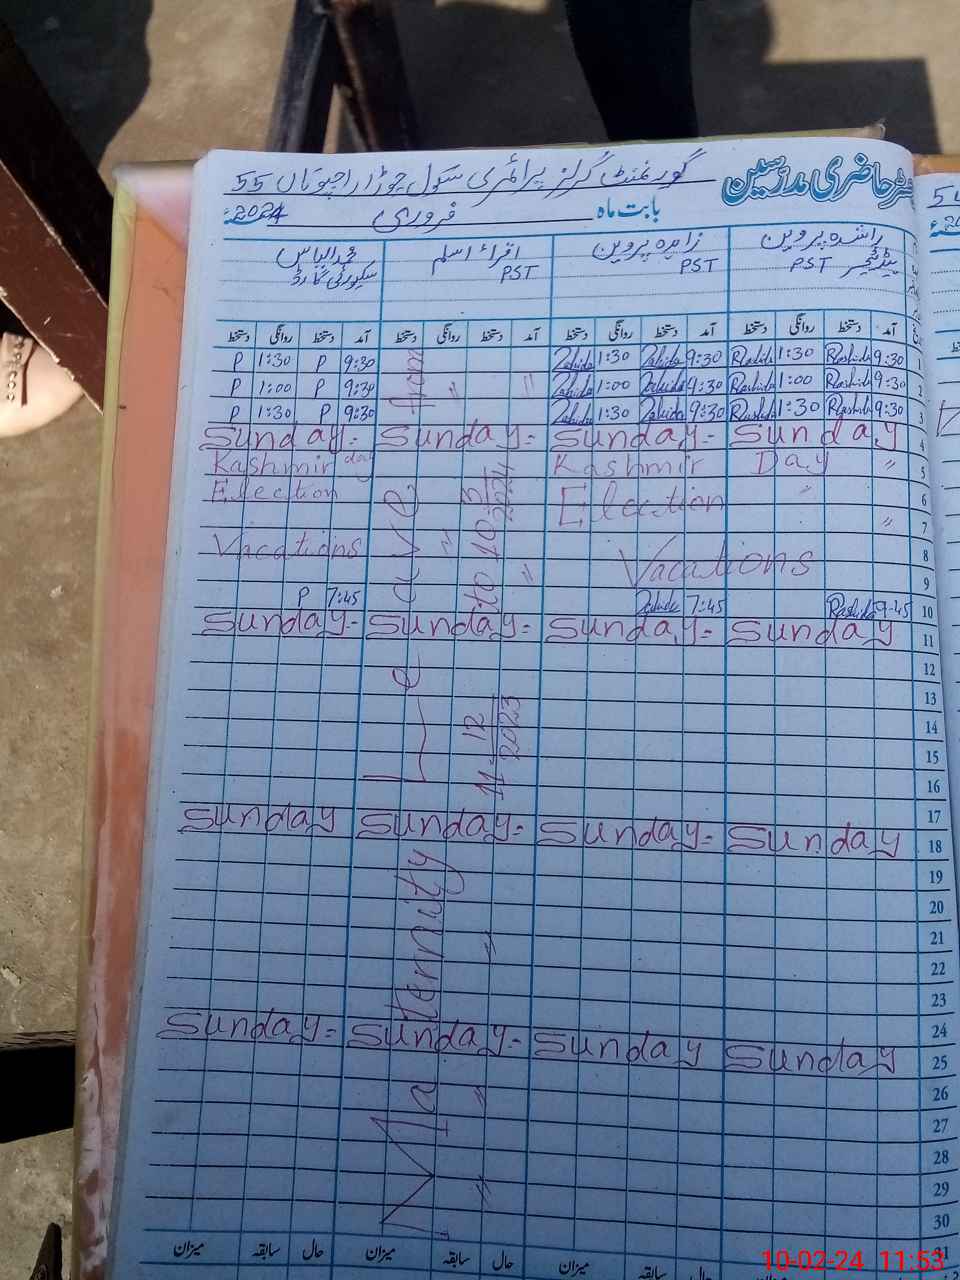 رجسٹر حاضری مدرسین گورنمنٹ گرلز پرائمری سکول چوڑا راجپوتاں 55
بابت ماہ فروری 2024ء
راشدہ پروین زاہدہ پروین اقراء اسلم محمد الیاس
ہیڈ ٹیچر PST PST PST سکیورٹی گارڈ
آمد دستخط روانگی دستخط آمد دستخط روانگی دستخط آمد دستخط روانگی دستخط آمد دستخط روانگی دستخط
1 9:30 Rashida 1:30 Rashida 9:30 Zahida 1:30 Zahida 9:30 P 1:30 P
2 9:30 Rashida 1:00 Rashida 9:30 Zahida 1:00 Zahida 9:30 P 1:00 P
3 9:30 Rashida 1:30 Rashida 9:30 Zahida 1:30 Zahida 9:30 P 1:30 P
Sunday - Sunday - Sunday - Sunday 4
Kashmir day Kashmir Day " 5
Election Election " 6
" 7
Vacations Vacations 8
9
P 7:45 Zahida 7:45 Rashida 9-45 10
Sunday - Sunday - Sunday - Sunday 11
12
13
14
15
16
17
Sunday Sunday - Sunday - Sunday 18
19
20
21
22
23
24
Sunday - Sunday - Sunday Sunday 25
26
27
28
29
30
31
Maternity Leave from
11-12/2023 to 10-3/2024
حال سابقہ میزان حال سابقہ میزان حال سابقہ میزان
10-02-24 11:53